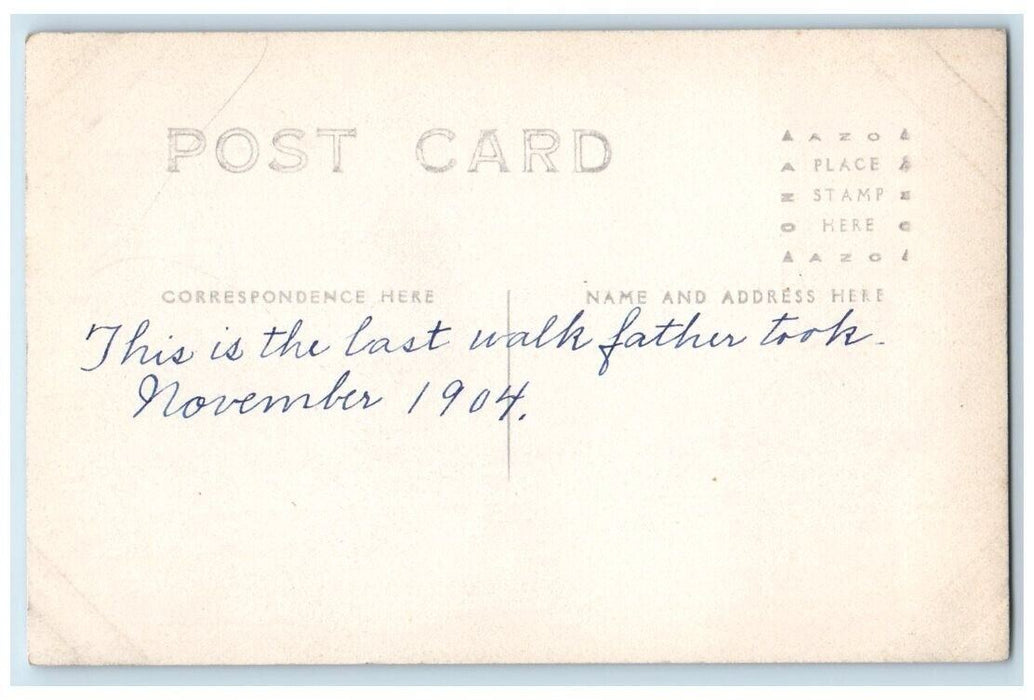 POST CARD
AZO
PLACE
STAMP
HERE
AZO
CORRESPONDENCE HERE
NAME AND ADDRESS HERE
This is the last walk father took.
November 1904.